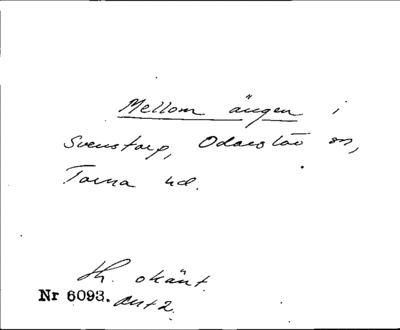 Mellom ängen i
Svenstorp, Odarslöv sn,
Torna hd.
th. okänt.
Nr 6093. ant 2.